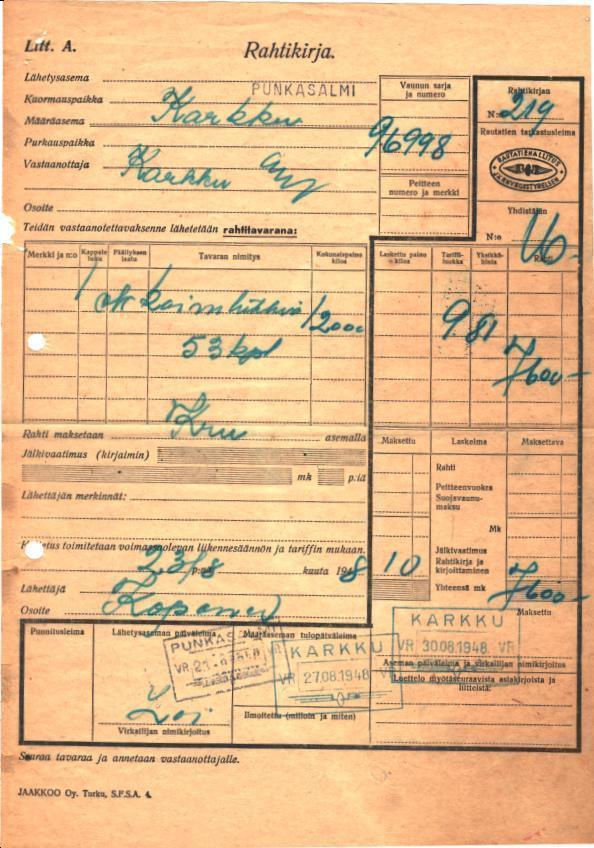 Litt. A.
Rahtikirja.
Lähetysasema PUNKASALMI
Kuormauspaikka
Määräasema Karkku
Purkauspaikka
Vastaanottaja Karkku
Osoite
Teidän vastaanotettavaksenne lähetetään rahtitavarana:
Vaunun sarja ja numero
96998
Peitteen numero ja merkki
Rahtikirjan
N:o 219
Rautatien tarkastusleima
RAUTATIEHALLITUS
JÄRNVÄGSSTYRELSEN
Yhdistäjän
N:o
Merkki ja n:o Kappaleluku Päällyksen laatu Tavaran nimitys Kokonaispaino kiloa
Laskettu paino kiloa Tariffiluokka Yksikköhinta Rahti
1 12000
53 kpl
981
7600-
Rahti maksetaan asemalla
Jälkivaatimus (kirjaimin)
mk p:iä
Lähettäjän merkinnät:
Maksettu Laskelma Maksettava
Rahti
Peitteenvuokra
Suojavaunumaksu
Mk
Jälkivaatimus
Rahtikirja ja kirjoittaminen
10
Yhteensä mk
7600-
Maksettu
Kuljetus toimitetaan voimassaolevan liikennesäännön ja tariffin mukaan.
23/8 p:nä kuuta 1948
Lähettäjä
Osoite
Punnitusleima Lähetysaseman päiväleima Määräaseman tulopäiväleima
KARKKU
VR 27.08.1948 VR
KARKKU
VR 30.08.1948 VR
Aseman päiväleima ja virkailijan nimikirjoitus
Luettelo myötäseuraavista asiakirjoista ja liitteistä:
Virkailijan nimikirjoitus
Ilmoitettu (milloin ja miten)
Seuraa tavaraa ja annetaan vastaanottajalle.
JAAKKOO Oy. Turku, S.F.S.A. 4.